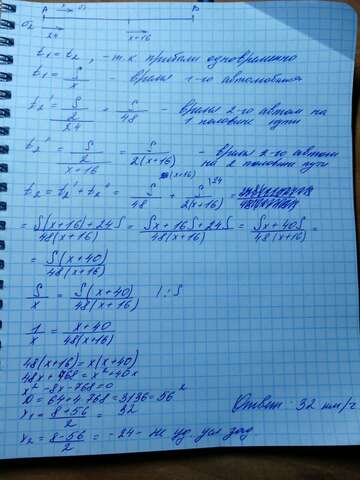 A x υ₁ B
υ₂ 24 x+16
t₁ = t₂, - т.к прибыли одновременно
t₁ = S/x - время 1-го автомобиля
t₂' = (S/2)/24 = S/48 - время 2-го автом на 1 половине пути
t₂'' = (S/2)/(x+16) = S/(2(x+16)) - время 2-го автом на 2 половине пути
t₂ = t₂' + t₂'' = S/48 \(x+16) + S/(2(x+16)) \24 =
= (S(x+16)+24S)/(48(x+16)) = (Sx+16S+24S)/(48(x+16)) = (Sx+40S)/(48(x+16)) =
= S(x+40)/(48(x+16))
S/x = S(x+40)/(48(x+16)) | : S
1/x = (x+40)/(48(x+16))
48(x+16) = x(x+40)
48x+768 = x²+40x
x²-8x-768=0
D = 64+4·768=3136=56²
x₁ = (8+56)/2 = 32
x₂ = (8-56)/2 = -24 - не уд. усл зад.
Ответ: 32 км/ч